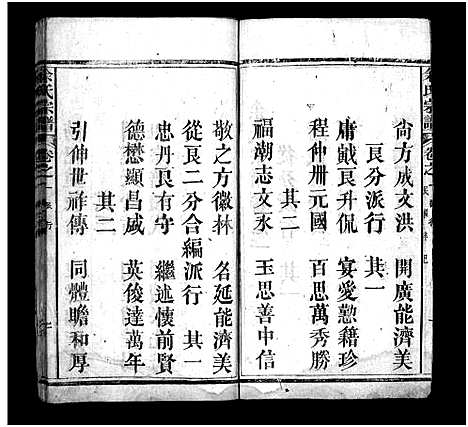 尙方成文洪　開廣能濟美
良分派行　其一
庸戴良升侃　宴愛懃藉珍
程仲卅元國　百思萬秀勝
其二
福潮志文永　玉思善中信
敬之方徽林　名延能濟美
從良二分合編派行　其一
忠丹良有守　繼述懷前賢
德懋顯昌盛　英俊達萬年
其二
引伸世祥傳　同體瞻和厚
氏宗譜
卷之